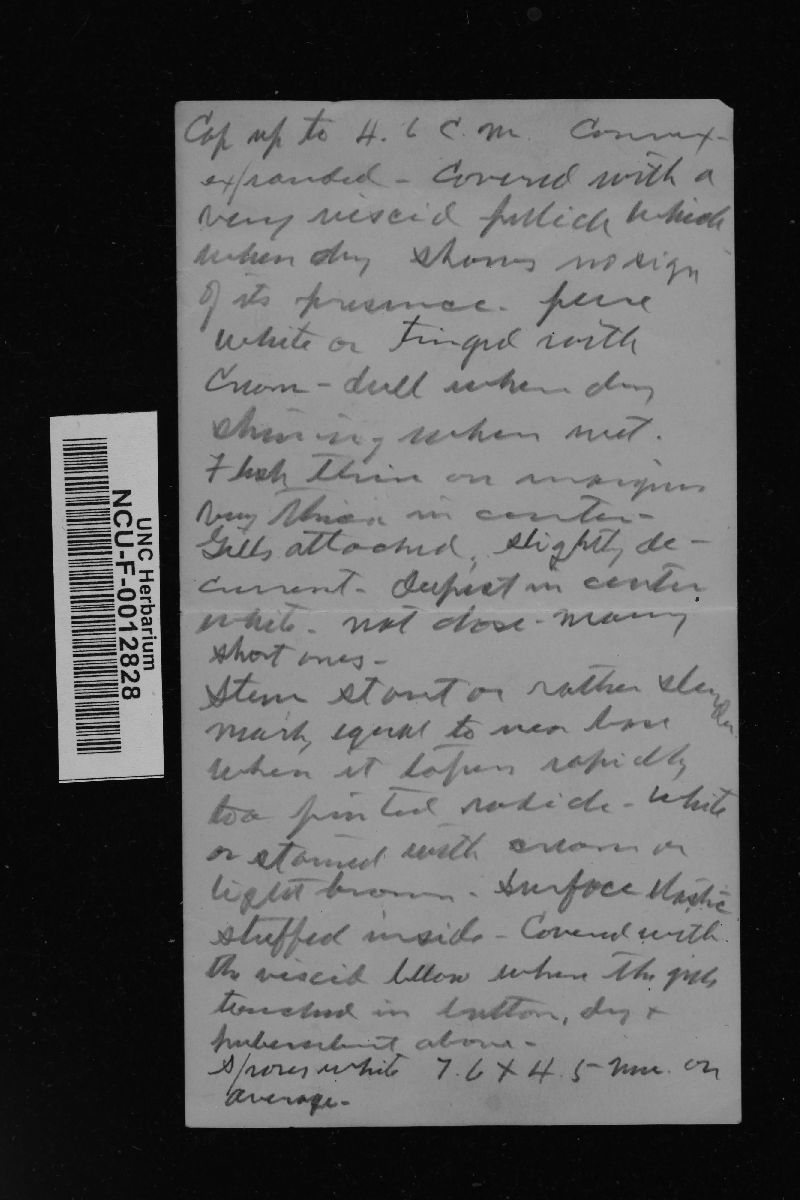 Cap up to 4.6 c.m. Convex-
expanded - Covered with a
very viscid pellicle which
when dry shows no sign
of its presence. pure
white or tinged with
cream - dull when dry
shining when wet.
Flesh thin on margin
very thick in center -
Gills attached, slightly de-
current - deepest in center
white - not close - many
short ones -
Stem stout or rather slender
equal to near base
when it tapers rapidly
to a pointed radicle - white
or stained with cream or
light brown - surface elastic
stuffed inside - Covered with
the viscid below where the gills
touched in button, dry &
puberulent above -
Spores white 7.6 x 4.5 mm. on
average -
UNC Herbarium
NCU-F-0012828